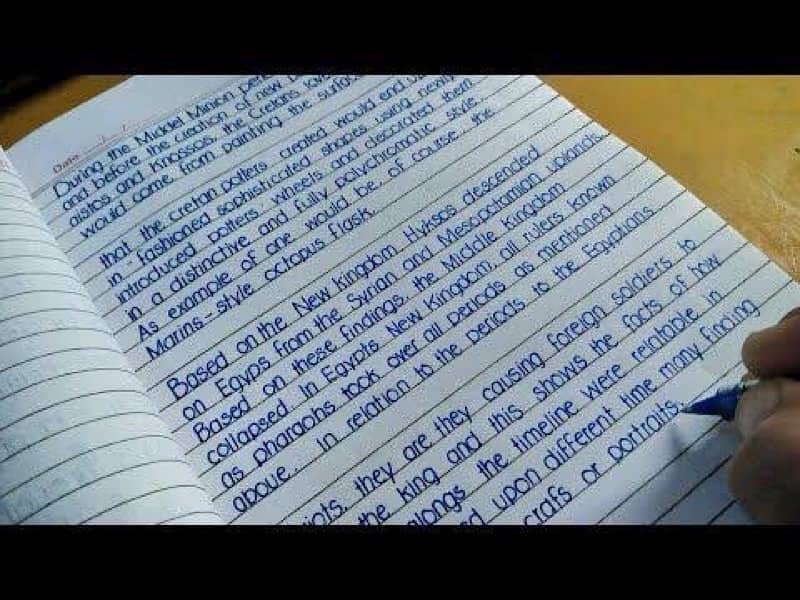 Date
During the Middel Minion
and before the creation of new
aistos and Knossos, the Cretans
would come from painting the surface
that the cretan potters created would end
in "fashioned sophisticated shapes using newly
introduced potters' wheels and decorated them
in a distinctive and fully polychromatic style.
As example of one would be, of course, the
Marins-style octopus flask.
Based on the New kingdom Hyksos descended
on Egyps from the Syrian and Mesopotamian uplands
Based on these findings, the Middle Kingdom
collapsed. In Egypts New Kingdom, all rulers known
as pharaohs took over all periods as mentioned
above. In relation to the periods to the Egyptians
they are they causing foreign soldiers to
the king and this shows the facts of how
alongs the timeline were relatable in
upon different time many finding
crafs or portraits.